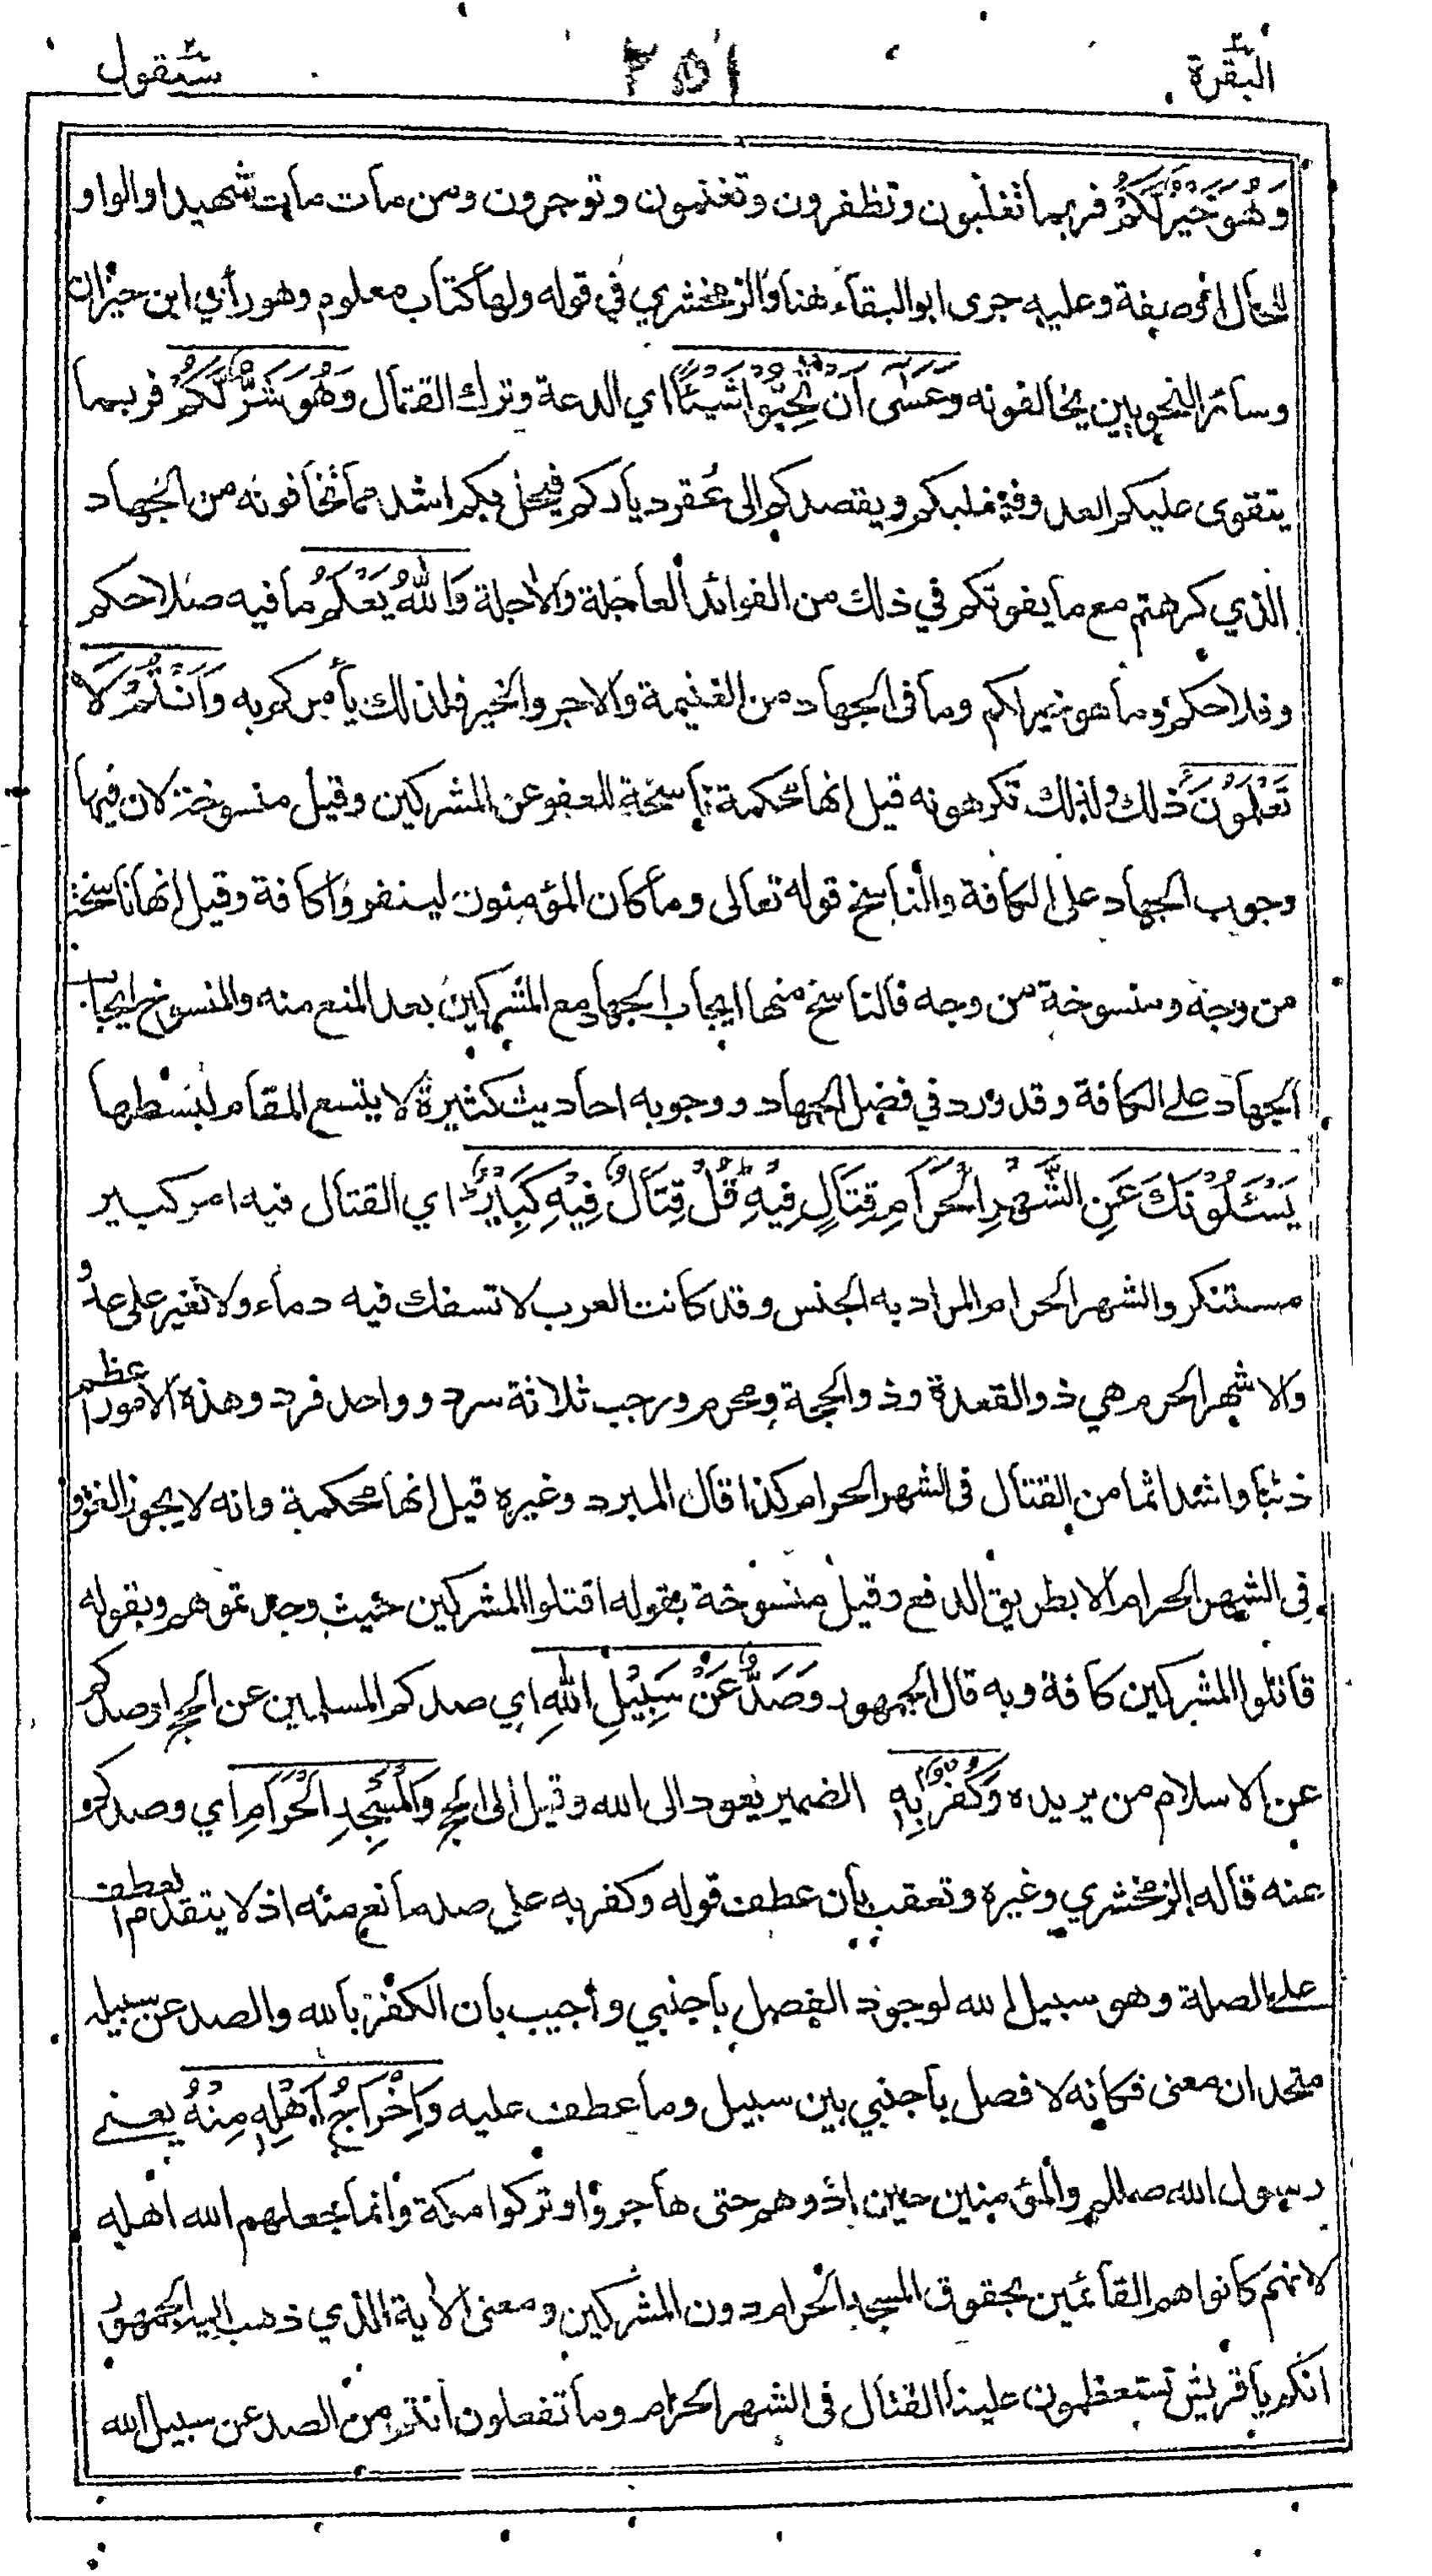 البقرة ٢
٢٥١
سيقول ٢
وَهُوَ خَيْرٌ لَّكُمْ فربما تغلبون وتظفرون وتغنمون وتوجرون ومن مات مات شهيدا والواو
للحال او صفة وعليه جرى ابو البقاء هنا والزمخشري في قوله ولها كتاب معلوم وهو رأي ابن خيران
وسائر النحويين يخالفونه وَعَسَى أَن تُحِبُّوْا شَيْئًا اي الدعة وترك القتال وَهُوَ شَرٌّ لَّكُمْ فربما
يتقوى عليكم العدو فيغلبكم ويقصدكم الى عقر دياركم فيحل بكم اشد مما تخافونه من الجهاد
الذي كرهتم مع ما يفوتكم في ذلك من الفوائد العاجلة والاجلة وَاللهُ يَعْلَمُ ما فيه صلاحكم
وفلاحكم وما هو خير لكم وما في الجهاد من الغنيمة والاجر والخير فلذلك يأمركم به وَاَنْتُمْ لَا
تَعْلَمُوْنَ ذلك ولذلك تكرهونه قيل انها محكمة ناسخة للعفو عن المشركين وقيل منسوخة لان فيها
وجوب الجهاد على الكافة والناسخ قوله تعالى وما كان المؤمنون لينفروا كافة وقيل انها ناسخة
من وجه ومنسوخة من وجه فالناسخ منها ايجاب الجهاد مع المشركين بعد المنع منه والمنسوخ ايجاب
الجهاد على الكافة وقد ورد في فضل الجهاد ووجوبه احاديث كثيرة لا يتسع المقام لبسطها
يَسْئَلُوْنَكَ عَنِ الشَّهْرِ الْحَرَامِ قِتَالٍ فِيْهِ قُلْ قِتَالٌ فِيْهِ كَبِيْرٌ اي القتال فيه امر كبير
مستنكر والشهر الحرام المراد به الجنس وقد كانت العرب لا تسفك فيه دماء ولا تغير على عدو
والاشهر الحرم هي ذو القعدة وذو الحجة ومحرم ورجب ثلاثة سرد وواحد فرد وهذه الامور اعظم
ذنبا واشد اثما من القتال في الشهر الحرام كذا قال المبرد وغيره قيل انها محكمة وانه لا يجوز الغزو
في الشهر الحرام الا بطريق الدفع وقيل منسوخة بقوله اقتلوا المشركين حيث وجدتموهم وبقوله
قاتلوا المشركين كافة وبه قال الجمهور وَصَدٌّ عَنْ سَبِيْلِ اللهِ اي صدكم المسلمين عن الحج او صدكم
عن الاسلام من يريده وَكُفْرٌ بِهٖ الضمير يعود الى الله وقيل الى الحج وَالْمَسْجِدِ الْحَرَامِ اي وصدكم
عنه قاله الزمخشري وغيره وتعقب بان عطف قوله وكفر به على صد مانع منه اذ لا يتقدم العطف
على الصلة وهو سبيل الله لوجود الفصل باجنبي وأجيب بان الكفر بالله والصد عن سبيله
متحدان معنى فكانه لا فصل باجنبي بين سبيل وما عطف عليه وَاِخْرَاجُ اَهْلِهٖ مِنْهُ يعني
رسول الله صللم والمؤمنين حين اذوهم حتى هاجروا وتركوا مكة وانما جعلهم الله اهله
لانهم كانوا هم القائمين بحقوق المسجد الحرام دون المشركين ومعنى الاية الذي ذهب اليه الجمهور
انكم يا قريش تستعظمون علينا القتال في الشهر الحرام وما تفعلون انتم من الصد عن سبيل الله